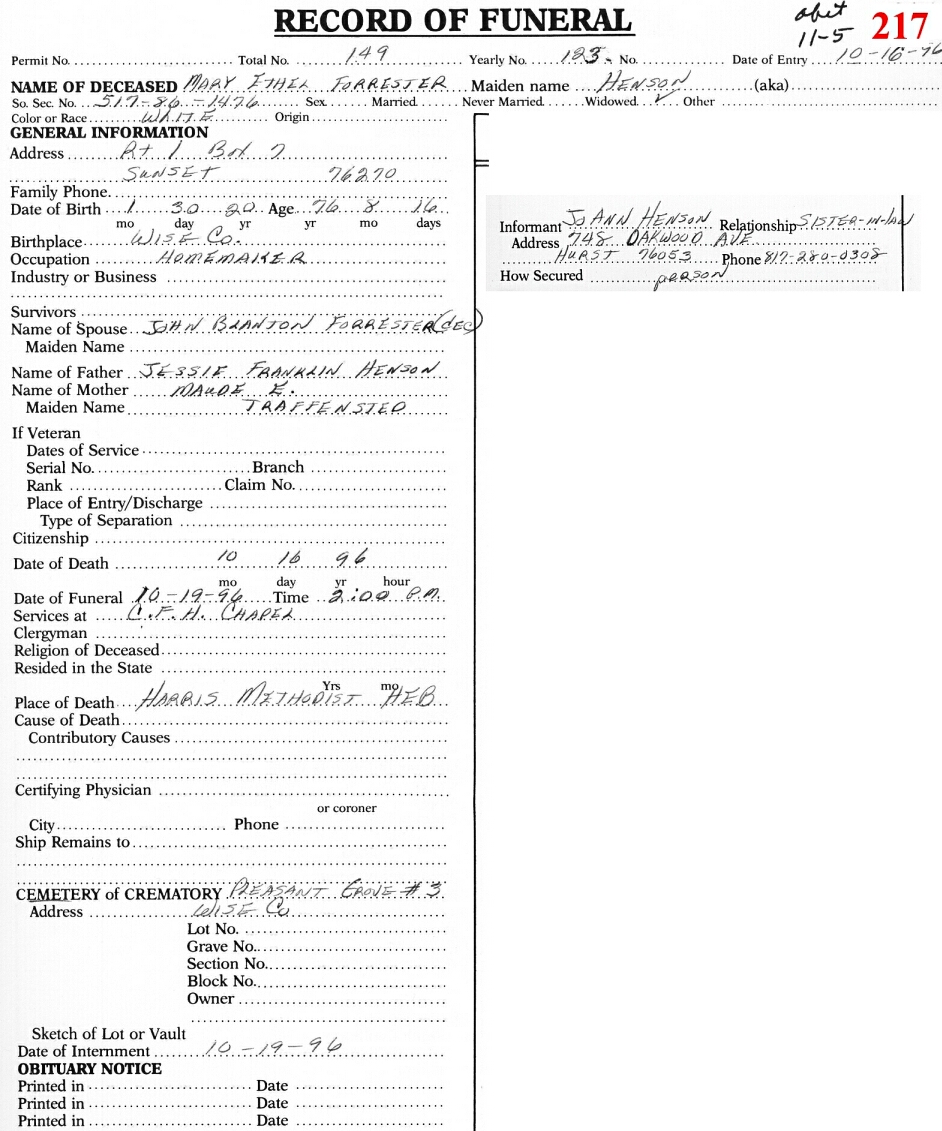 RECORD OF FUNERAL
obit
11-5
217
Permit No. Total No. 149 Yearly No. 123. No. Date of Entry 10-16-96
NAME OF DECEASED MARY ETHEL FORRESTER Maiden name HENSON (aka)
So. Sec. No. 517-86-1476 Sex Married Never Married Widowed ✓ Other
Color or Race WHITE Origin
GENERAL INFORMATION
Address Rt 1 Box 7
SUNSET 76270
Family Phone.
Date of Birth 1 30 20 Age 76 8 16
mo day yr yr mo days
Birthplace WISE CO.
Occupation HOMEMAKER
Industry or Business
Informant JO ANN HENSON Relationship SISTER-IN-LAW
Address 748 OAKWOOD AVE
HURST 76053 Phone 817-280-0308
How Secured person
Survivors
Name of Spouse JOHN BLANTON FORRESTER (DEC)
Maiden Name
Name of Father JESSIE FRANKLIN HENSON
Name of Mother MAUDE E.
Maiden Name TRAFFENSTED
If Veteran
Dates of Service
Serial No. Branch
Rank Claim No.
Place of Entry/Discharge
Type of Separation
Citizenship
Date of Death 10 16 96
mo day yr hour
Date of Funeral 10-19-96 Time 2:00 P.M.
Services at C.F.H. CHAPEL
Clergyman
Religion of Deceased
Resided in the State
Yrs mo
Place of Death HARRIS METHODIST HEB
Cause of Death
Contributory Causes
Certifying Physician
or coroner
City Phone
Ship Remains to
CEMETERY of CREMATORY PLEASANT GROVE #3
Address WISE CO
Lot No.
Grave No.
Section No.
Block No.
Owner
Sketch of Lot or Vault
Date of Internment 10-19-96
OBITUARY NOTICE
Printed in Date
Printed in Date
Printed in Date